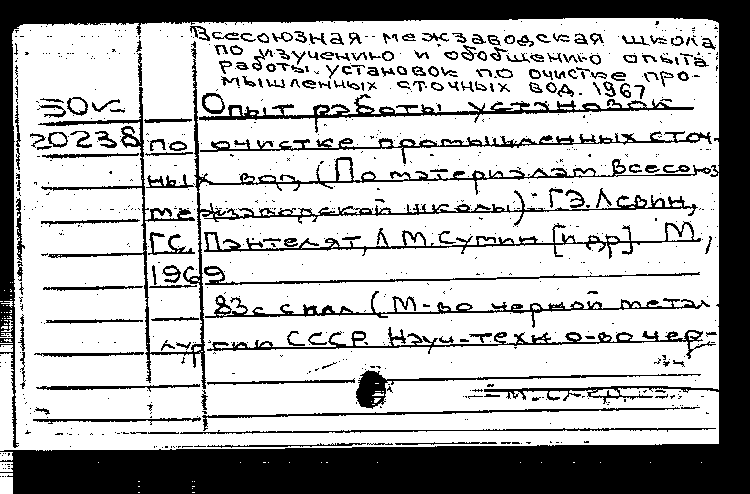 Всесоюзная межзаводская школа
по изучению и обобщению опыта
работы установок по очистке про-
мышленных сточных вод. 1967
30к Опыт работы установок
20238 по очистке промышленных сточ-
ных вод (По материалам Всесоюз
межзаводской школы). Г.Э. Левин,
Г.С. Пантелят, Л.М. Сутин [и др]. М.,
1969
83с с илл. (М-во черной метал-
лургии СССР. Науч-техн о-во чер-
см. след.